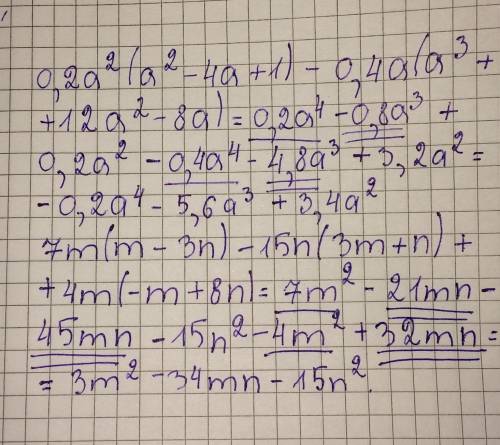 0,2a²(a² - 4a + 1) - 0,4a(a³ +
+ 12a² - 8a) = 0,2a⁴ - 0,8a³ +
0,2a² - 0,4a⁴ - 4,8a³ + 3,2a² =
- 0,2a⁴ - 5,6a³ + 3,4a²
7m(m - 3n) - 15n(3m + n) +
+ 4m(-m + 8n) = 7m² - 21mn -
45mn - 15n² - 4m² + 32mn =
= 3m² - 34mn - 15n².